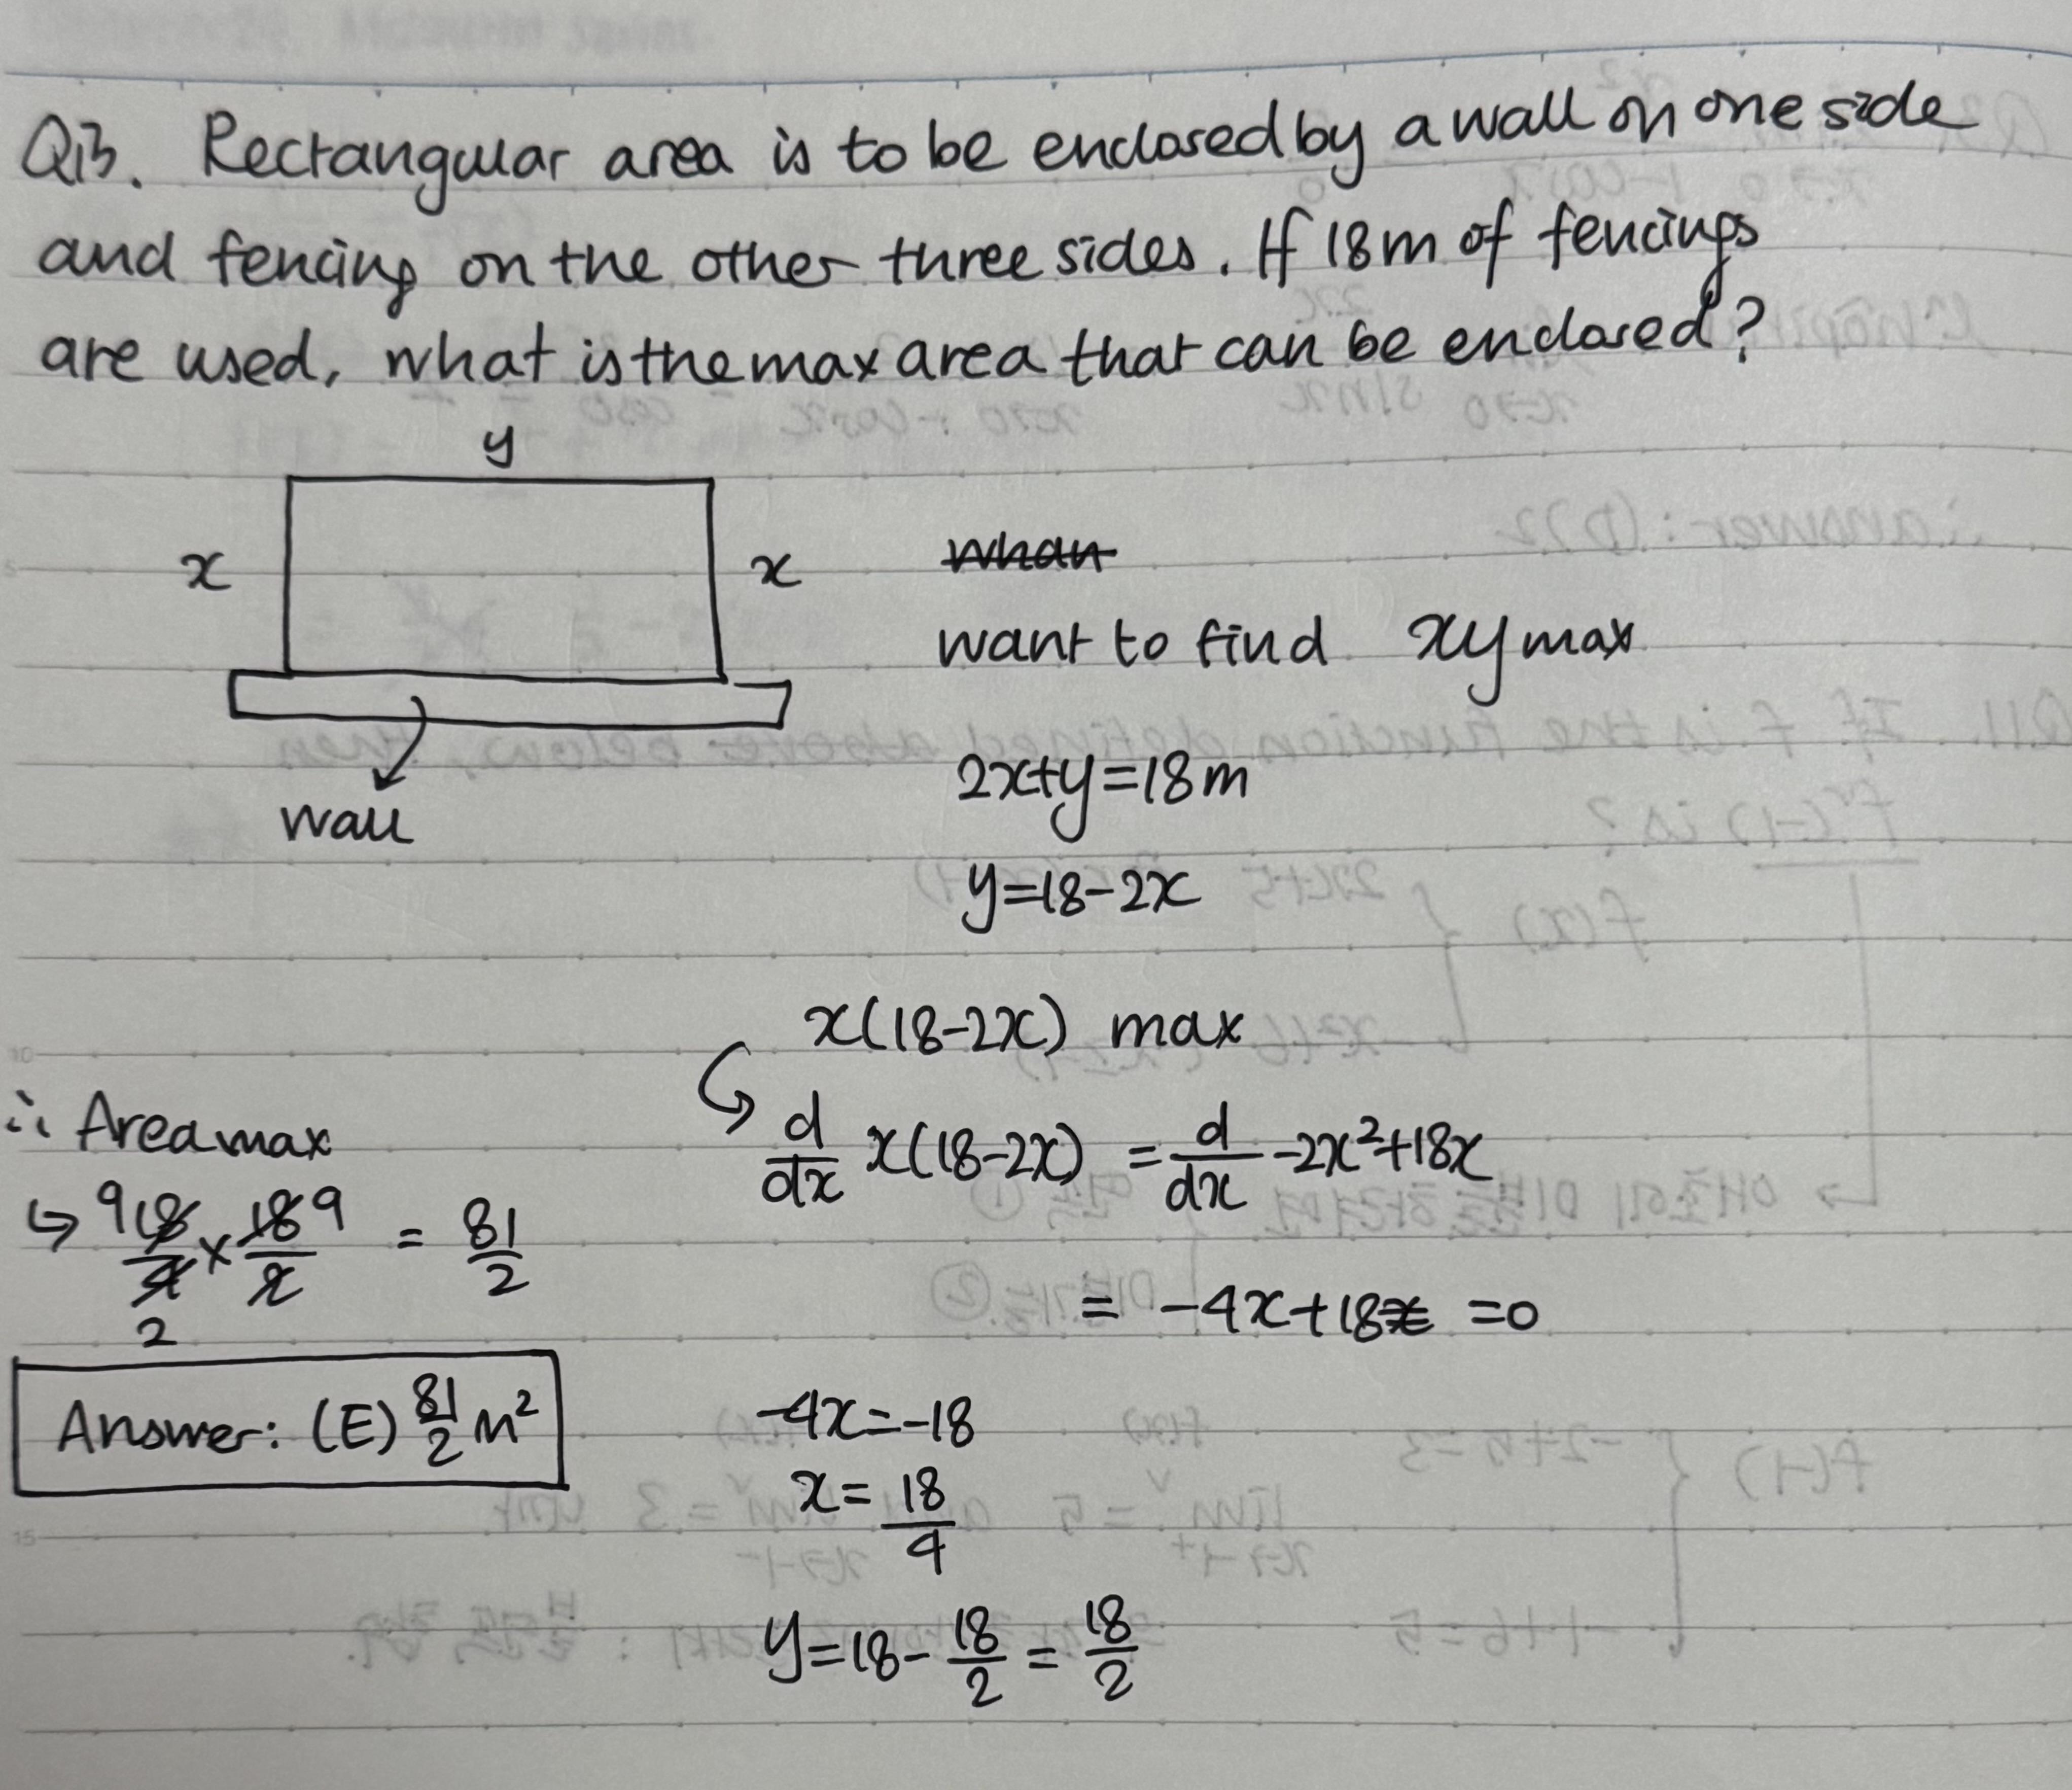 Q13. Rectangular area is to be enclosed by a wall on one side
and fencing on the other three sides. If 18m of fencings
are used, what is the max area that can be enclosed?
y
x
x
whan
want to find xy max
wall
2x+y=18m
y=18-2x
x(18-2x) max
d/dx x(18-2x) = d/dx -2x²+18x
= -4x+18x =0
-4x=-18
x=18/4
y=18-18/2=18/2
∴ Area max
↳ 9 18/4 2 × 18 9/2 = 81/2
Answer: (E) 81/2 m²